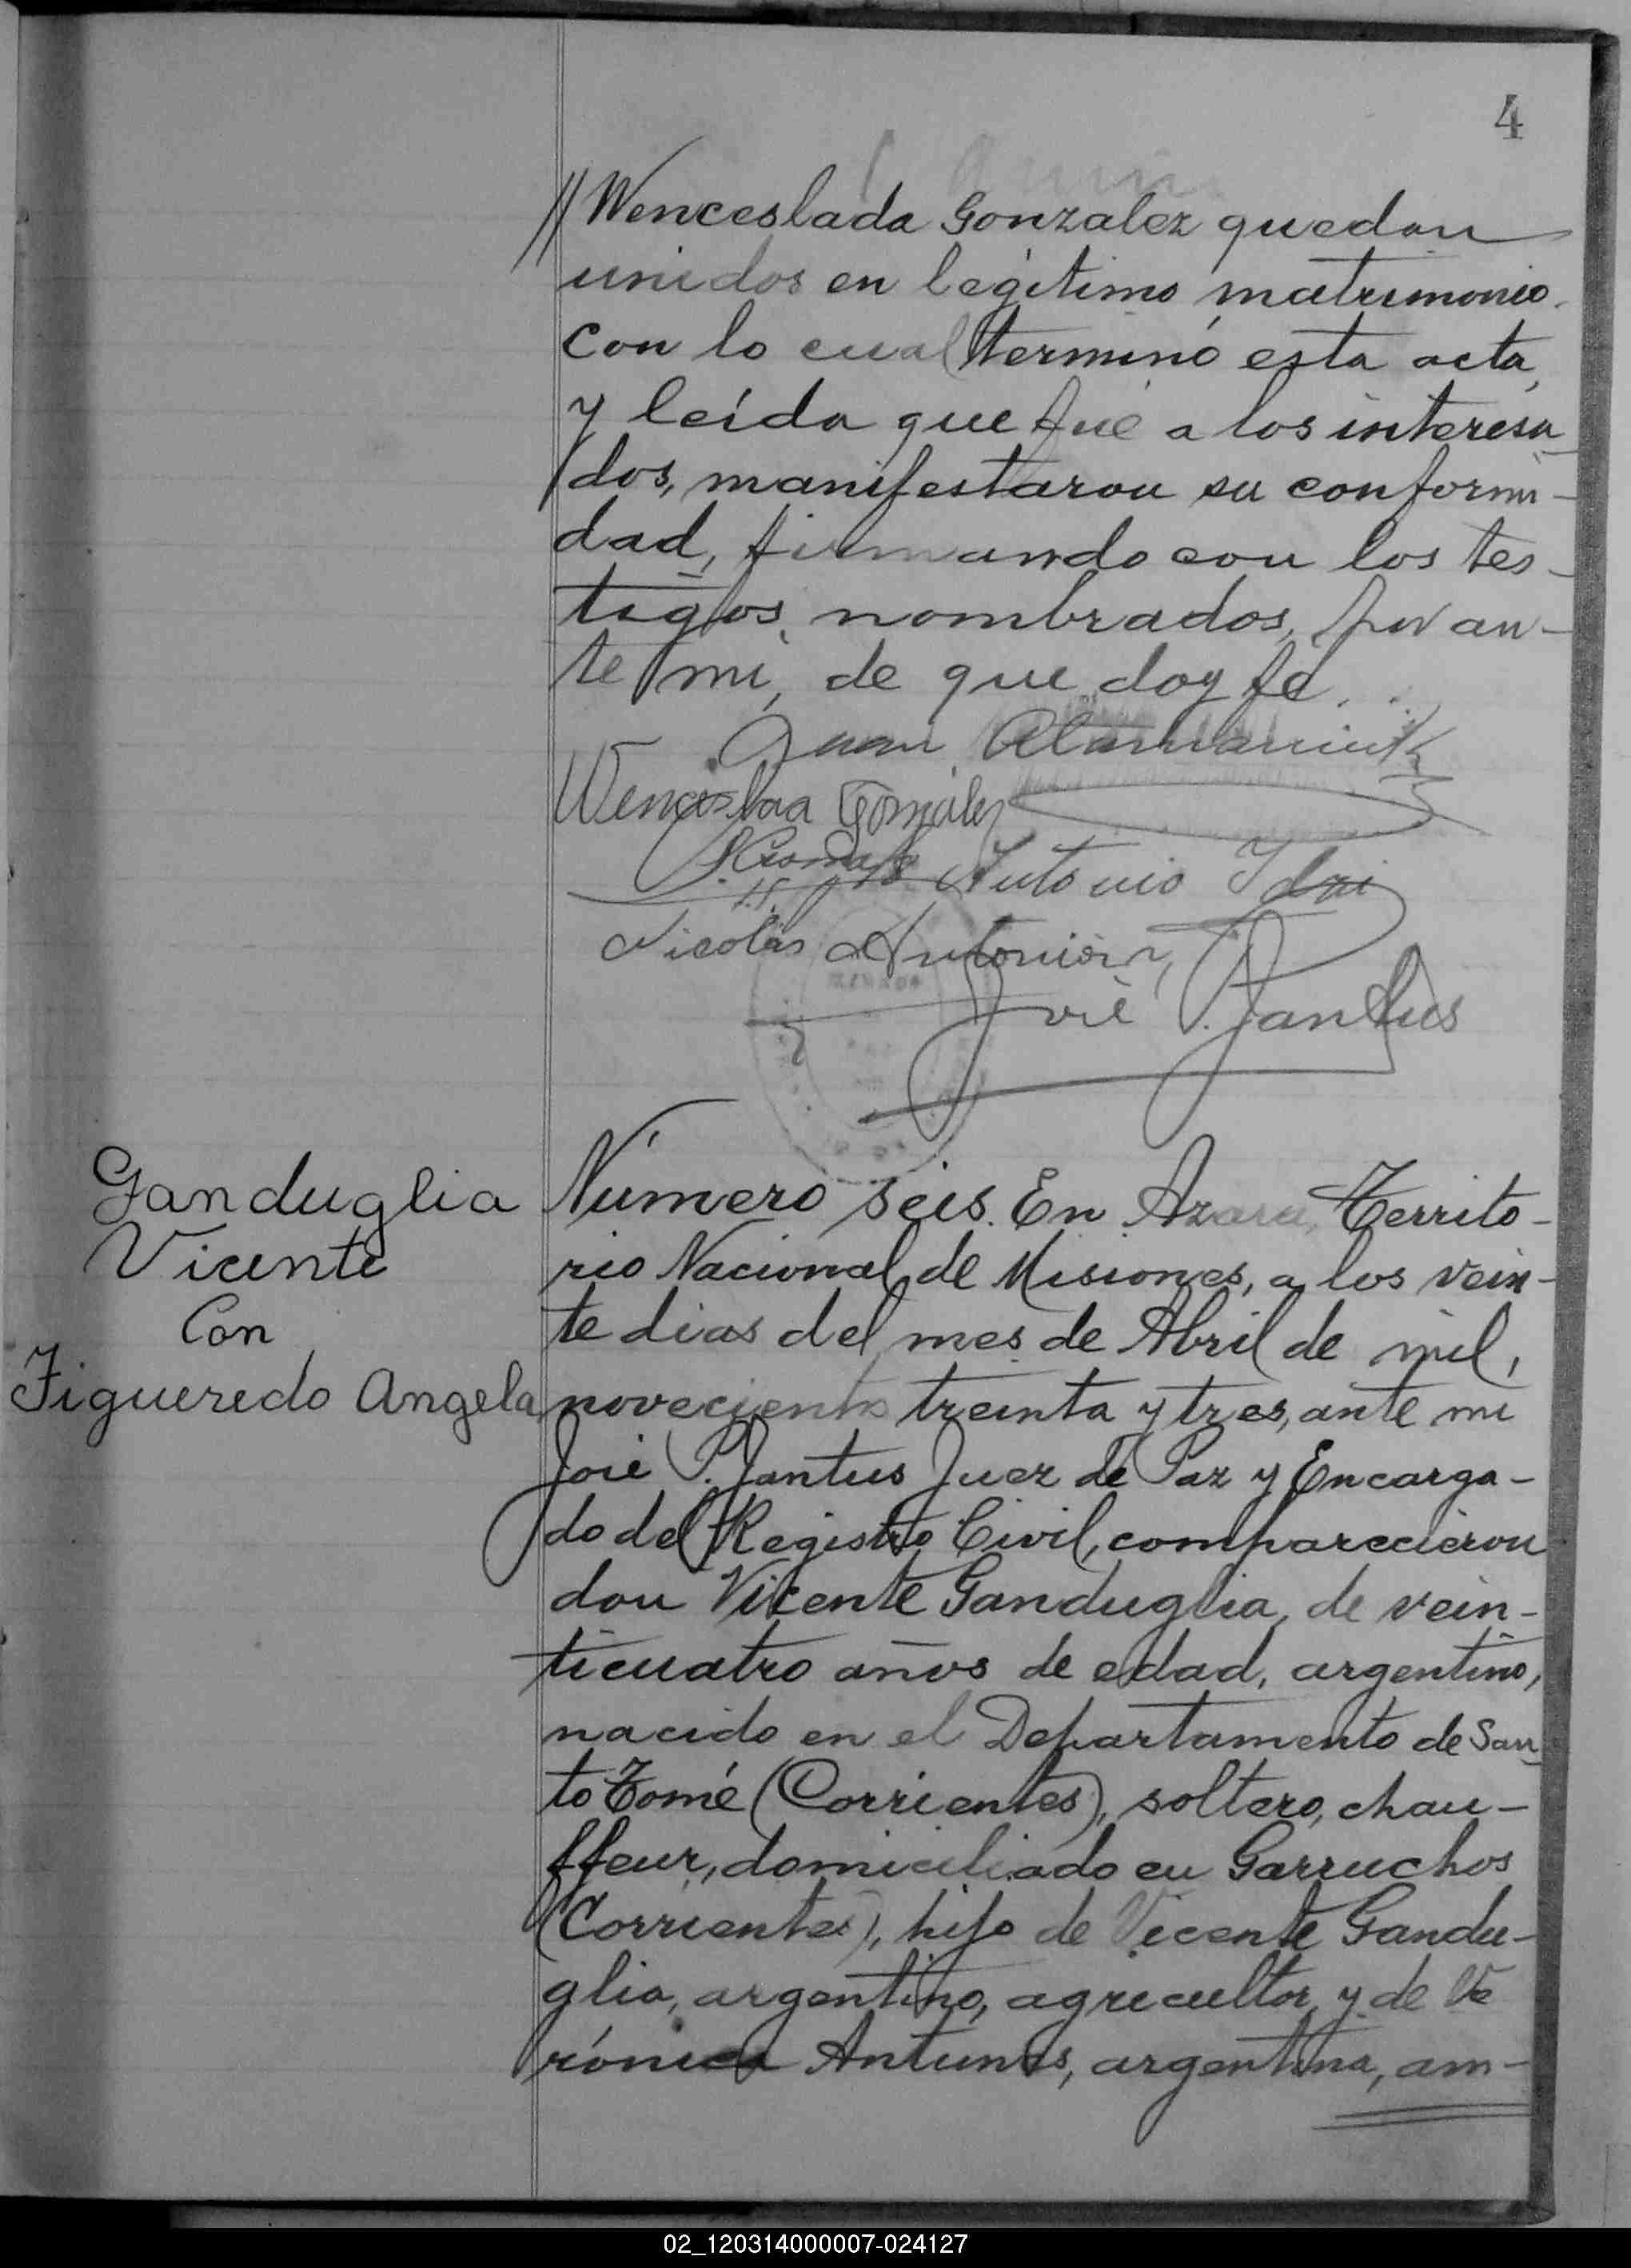 4
// Wenceslada Gonzalez quedan
unidos en legítimo matrimonio.
Con lo cual terminó esta acta,
y leída que fué a los interesa-
dos, manifestaron su conformi-
dad, firmando con los tes-
tigos nombrados, por an-
te mi, de que doy fé.
Juan
Wenceslaa Gonzalez
Antonio
Nicolás
José P. Jantus
Ganduglia
Vicente
Con
Figueredo Angela
Número seis. En Azara, Territo-
rio Nacional de Misiones, a los vein-
te dias del mes de Abril de mil,
novecientos treinta y tres, ante mi
José P. Jantus Juez de Paz y Encarga-
do del Registro Civil, comparecieron
don Vicente Ganduglia, de vein-
ticuatro años de edad, argentino,
nacido en el Departamento de San-
to Tomé (Corrientes), soltero, chau-
ffeur, domiciliado en Garruchos
(Corrientes), hijo de Vicente Gandu-
glia, argentino, agricultor, y de Ve
rónica Antunes, argentina, am-
02_120314000007-024127